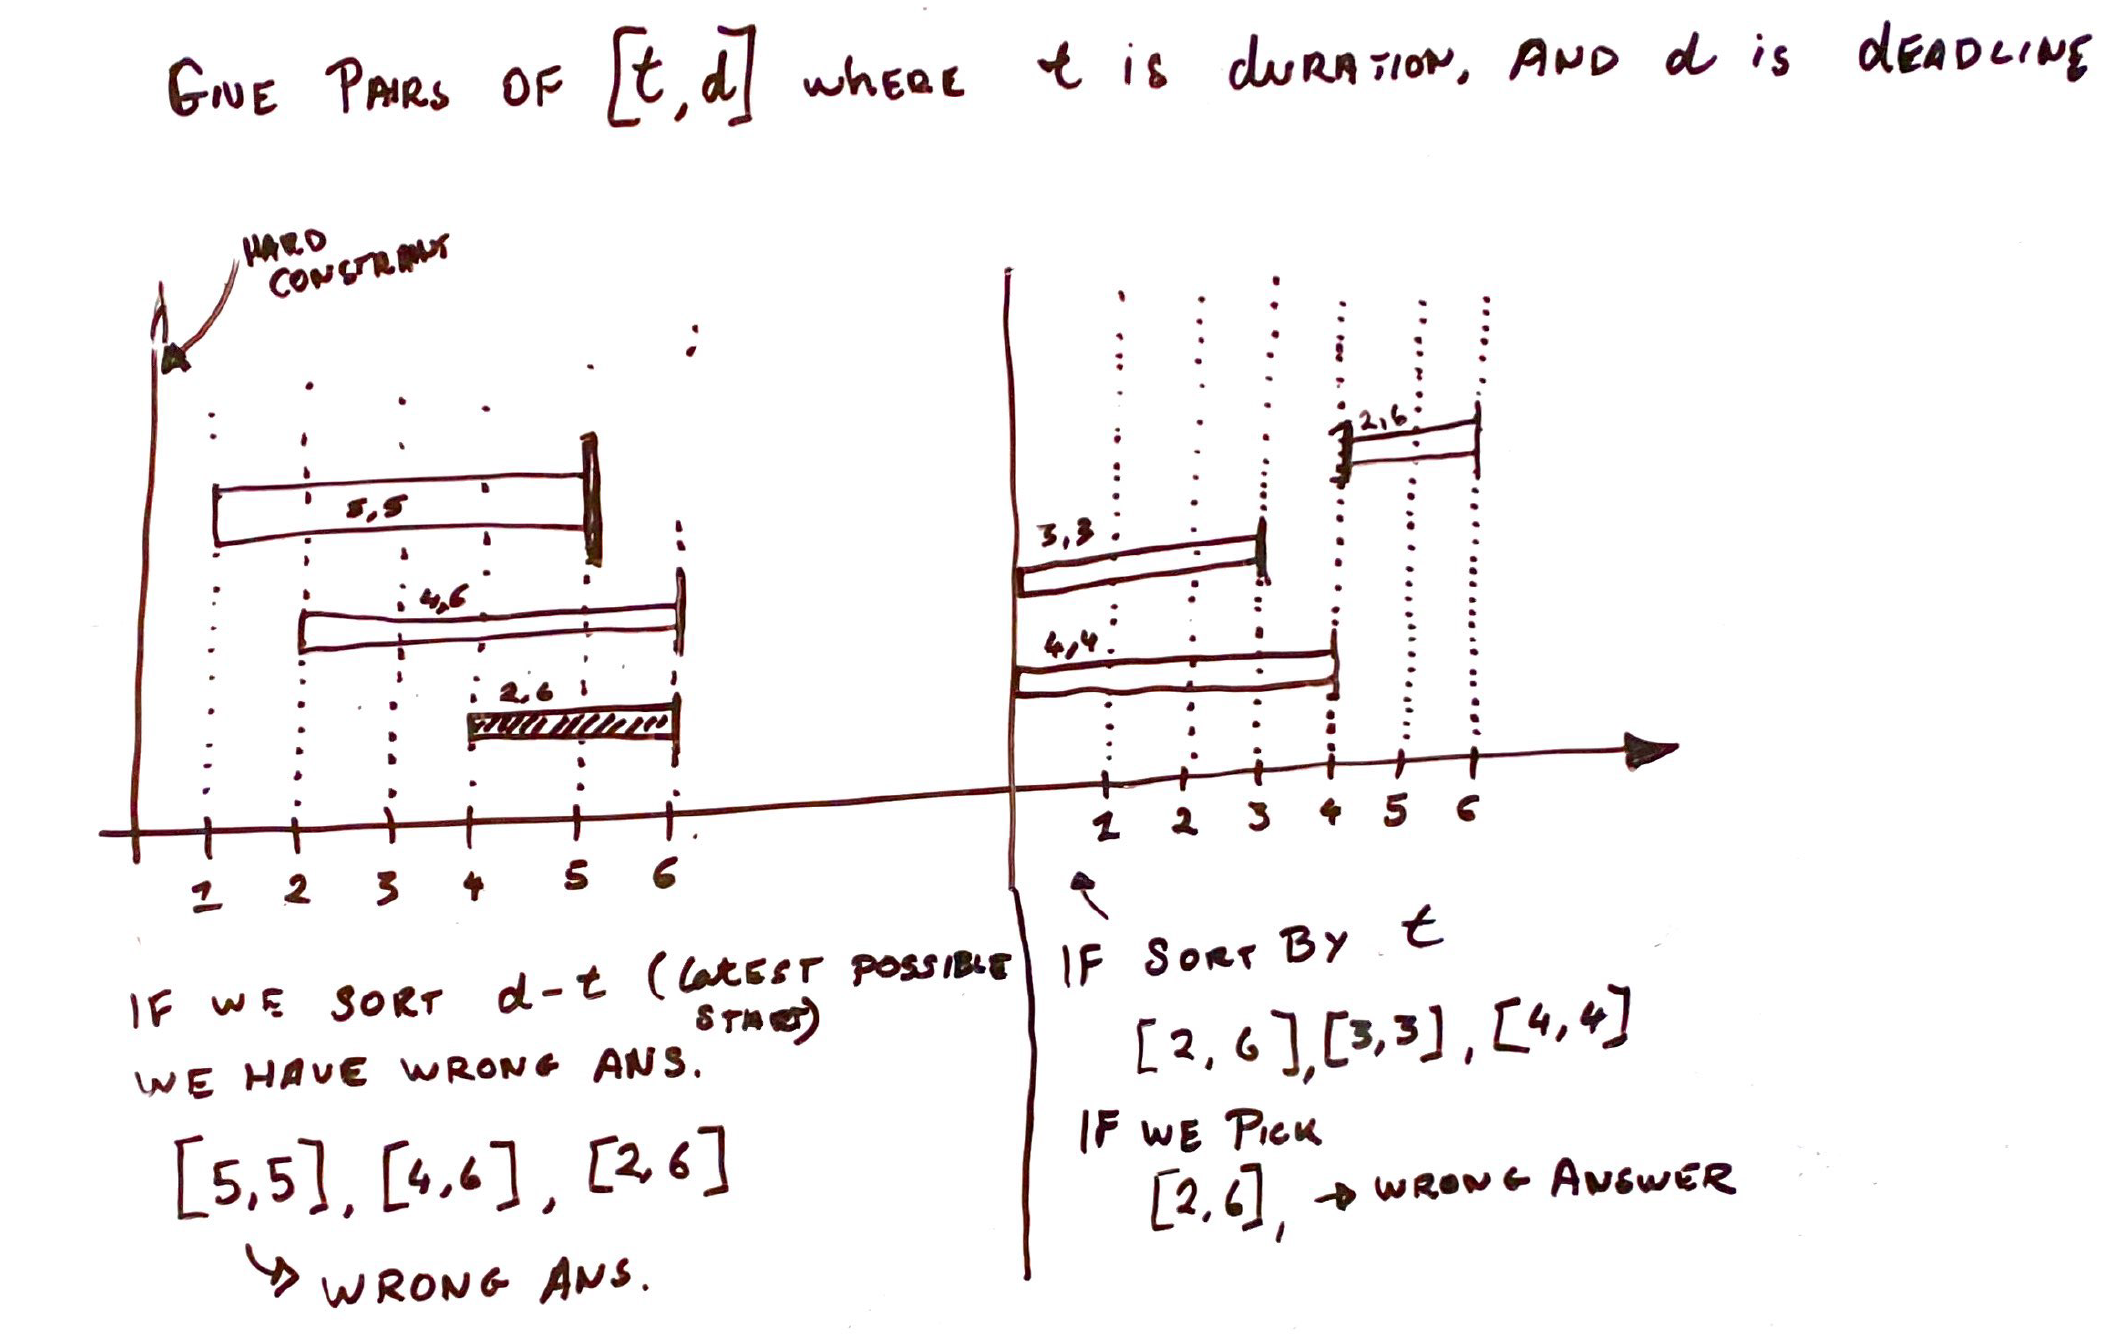 GIVE PAIRS OF [t, d] WHERE t is dURATION, AND d is dEADLINE
HARD
CONSTRAINT
5,5
4,6
2,6
1 2 3 4 5 6
2,6
3,3
4,4
1 2 3 4 5 6
IF WE SORT d-t (LatEST POSSIBLE
START)
WE HAVE WRONG ANS.
[5,5], [4,6], [2,6]
WRONG ANS.
IF SORT BY t
[2, 6], [3,3], [4,4]
IF WE PICK
[2,6], → WRONG ANSWER